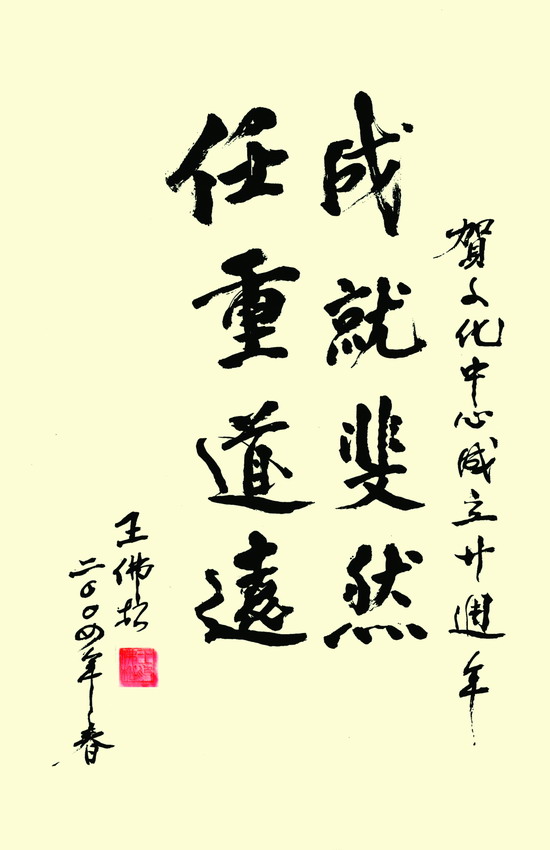 賀文化中心成立廿週年
成就斐然
任重道遠
王佛松
二〇〇四年春